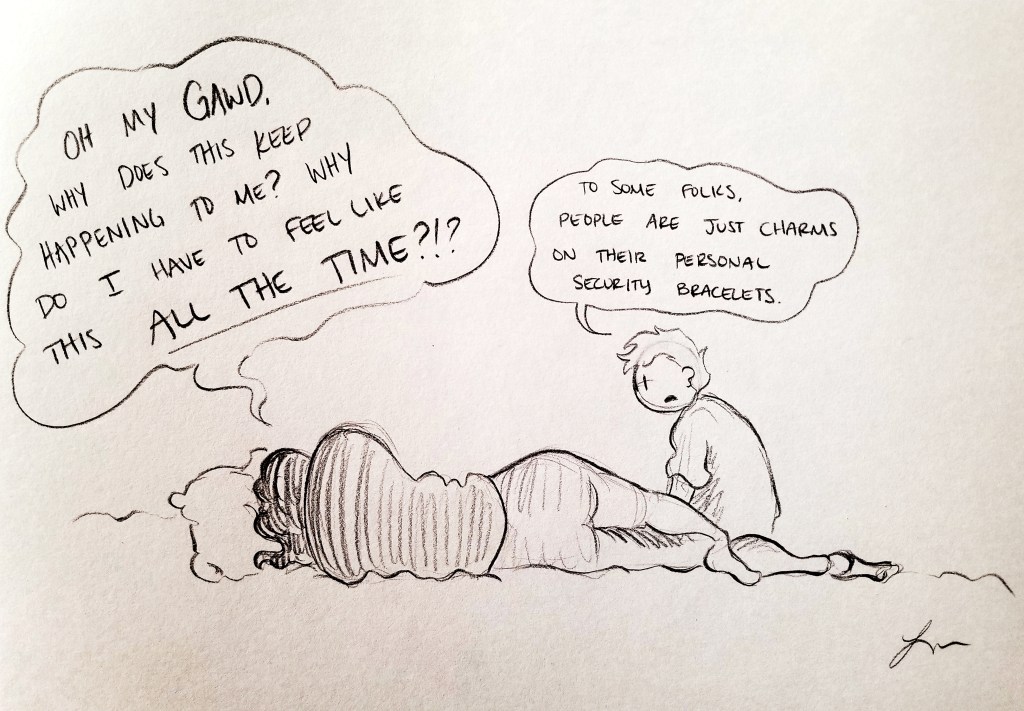 OH MY GAWD,
WHY DOES THIS KEEP
HAPPENING TO ME? WHY
DO I HAVE TO FEEL LIKE
THIS ALL THE TIME?!?
TO SOME FOLKS,
PEOPLE ARE JUST CHARMS
ON THEIR PERSONAL
SECURITY BRACELETS.